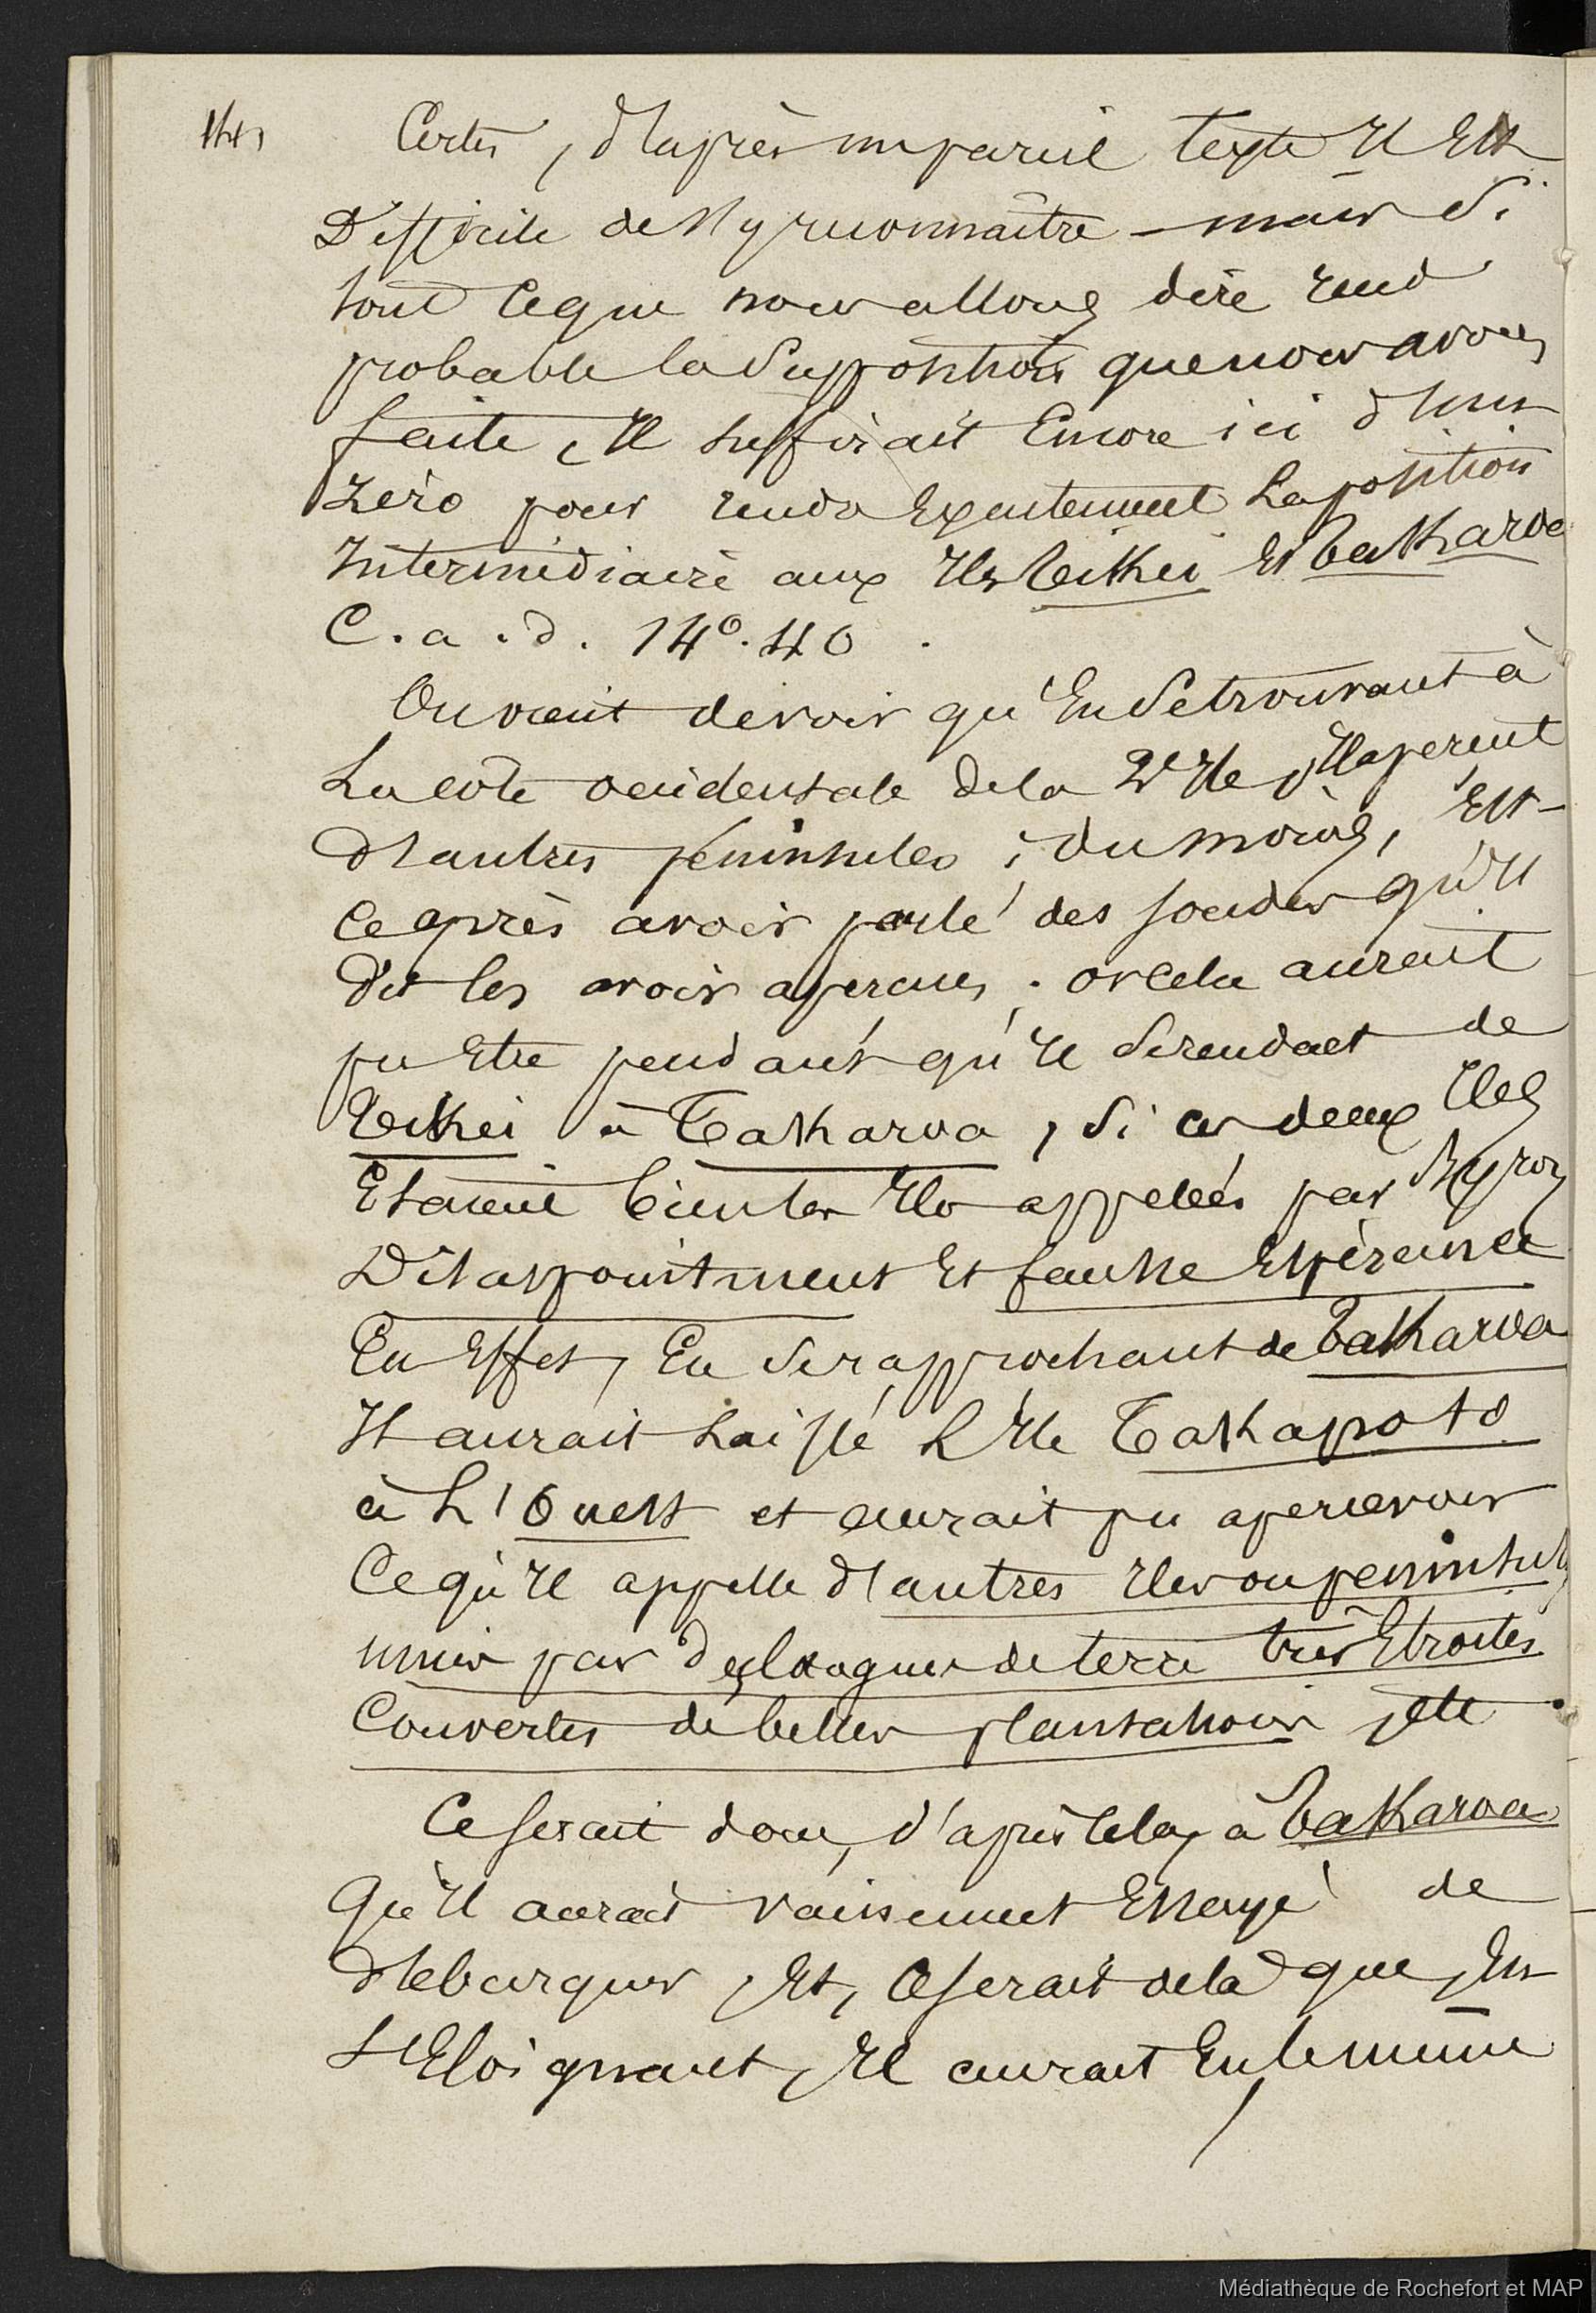 141
Certes, d'après un pareil texte Il Est
Difficile de s'y reconnaître — mais Si
tout Ce que nous allons dire rend
probable la Supposition que nous avons
faite, Il suffirait Encore ici d'un
Zéro pour rendre Exactement La position
Intermédiaire aux Iles Teikei Et Takaroa
C. a. d. 14°. 40.
On vient de voir qu'En Se trouvant à
La côte occidentale de la 2e Ile, Il aperçut
d'autres péninsules ; Du moins, Est-
Ce après avoir parlé des sondes qu'Il
dit les avoir aperçues. or Cela aurait
pu Etre pendant qu'Il Se rendait de
Teikei à Takaroa, Si ces deux Iles
Etaient bien les Iles appelées par Byron
Disappointment Et fausse Espérance
En Effet, En Se rapprochant de Takaroa
Il aurait Laissé L'Ile Takapoto
à L'Ouest et aurait pu apercevoir
Ce qu'Il appelle d'autres Iles ou péninsules
unies par des langues de terre très Etroites
Couvertes de belles plantations, etc.
Ce serait donc, d'après Cela, à Takaroa
Qu'Il aurait vainement Essayé de
débarquer, Et, Ce serait de là que, En
S'Eloignant, Il aurait En le même
Médiathèque de Rochefort et MAP